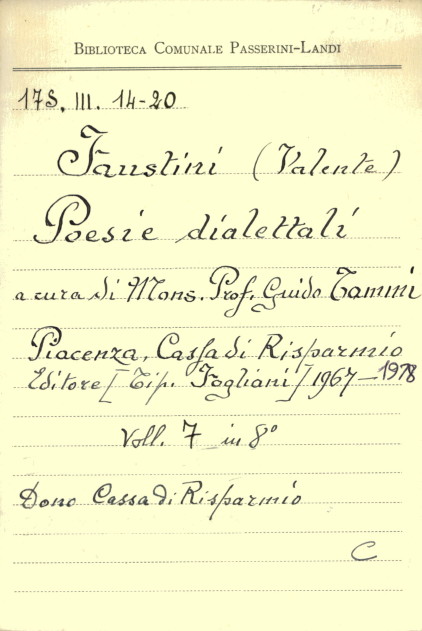 BIBLIOTECA COMUNALE PASSERINI-LANDI
17S. III. 14-20
Faustini (Valente)
Poesie dialettali
a cura di Mons. Prof. Guido Tammi
Piacenza, Cassa di Risparmio
Editore [Tip. Fogliani] 1967-1978
Voll. 7 in 8°
Dono Cassa di Risparmio
C